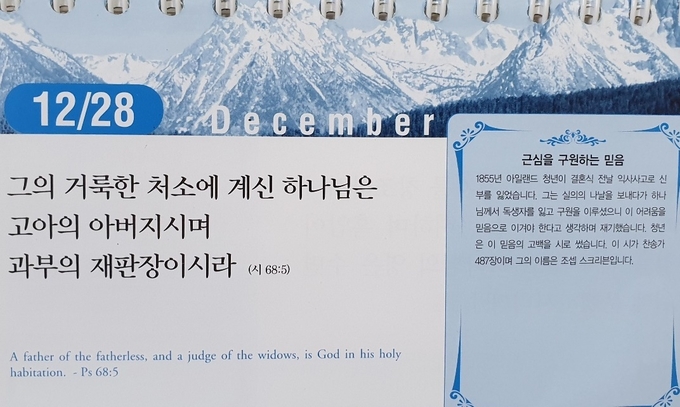 12/28
December
그의 거룩한 처소에 계신 하나님은
고아의 아버지시며
과부의 재판장이시라 (시 68:5)
A father of the fatherless, and a judge of the widows, is God in his holy
habitation. - Ps 68:5
근심을 구원하는 믿음
1855년 아일랜드 청년이 결혼식 전날 익사사고로 신
부를 잃었습니다. 그는 실의의 나날을 보내다가 하나
님께서 독생자를 잃고 구원을 이루셨으니 이 어려움을
믿음으로 이겨야 한다고 생각하며 재기했습니다. 청년
은 이 믿음의 고백을 시로 썼습니다. 이 시가 찬송가
487장이며 그의 이름은 조셉 스크리븐입니다.